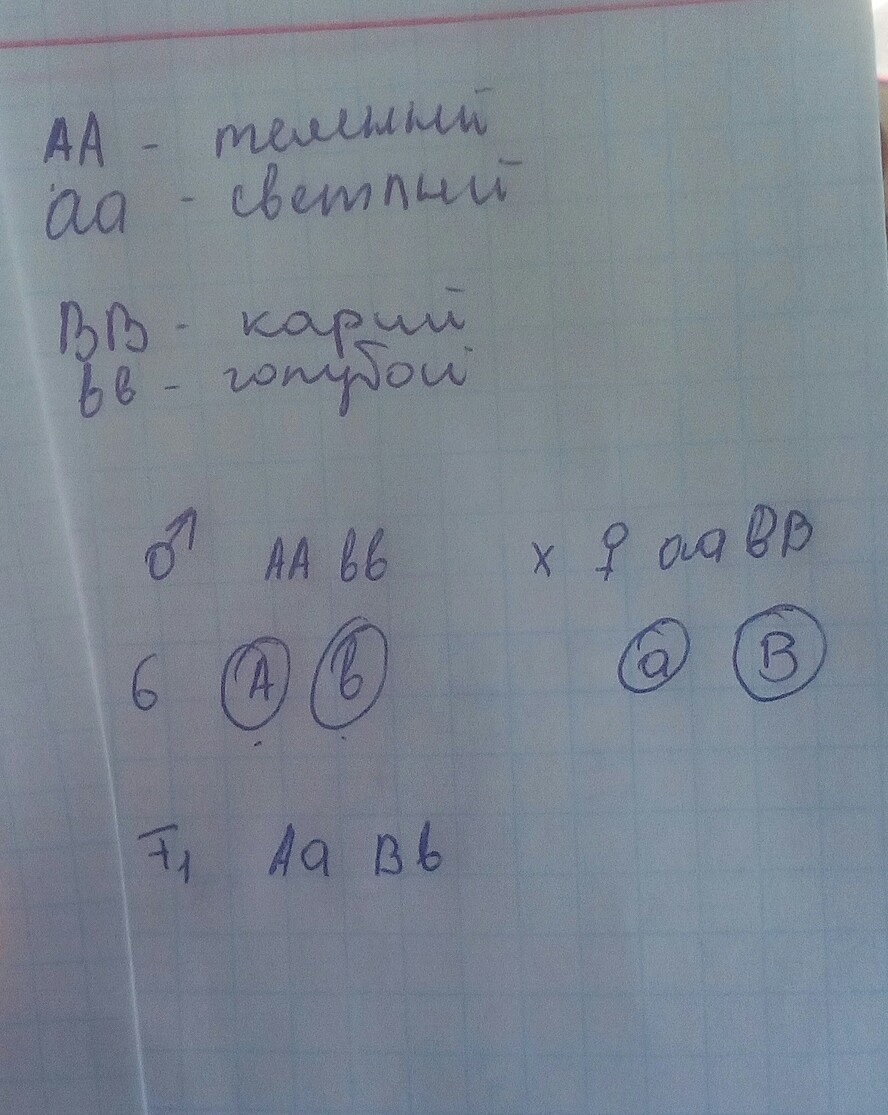 AA - темный
aa - светлый
BB - карий
вв - голубой
♂ AA вв x ♀ aa BB
G A в a B
F1 Aa Bв